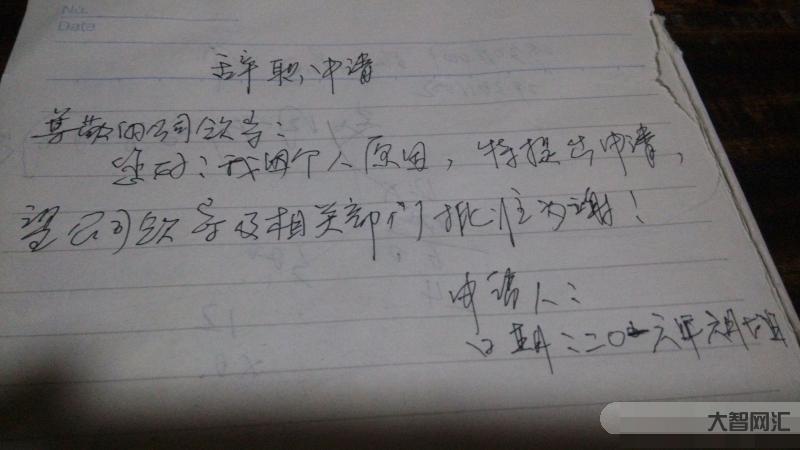 No.
Date
辞职申请
尊敬的公司领导：
您好：我因个人原因，特提出申请，
望公司领导及相关部门批准为谢！
申请人：
日期：二〇一六年六月
大智网汇